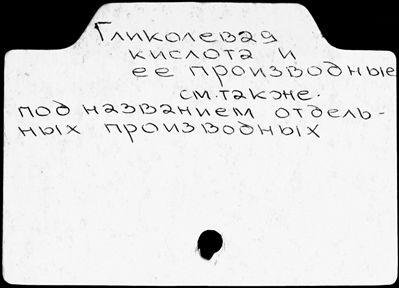 Гликолевая
кислота и
ее производные
см.также.
под названием отдель-
ных производных